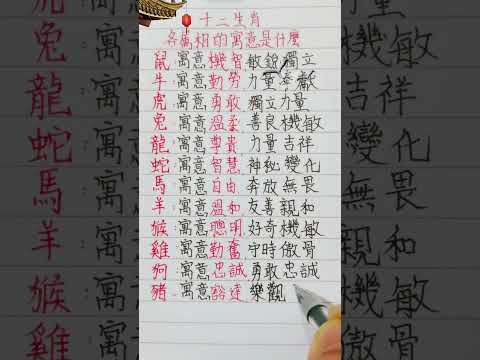 十二生肖
各屬相的寓意是什麼
鼠:寓意機智敏銳獨立
牛:寓意勤勞力量奉獻
虎:寓意勇敢獨立力量
兔:寓意溫柔善良機敏
龍:寓意尊貴力量吉祥
蛇:寓意智慧神秘變化
馬:寓意自由奔放無畏
羊:寓意溫和友善親和
猴:寓意聰明好奇機敏
雞:寓意勤奮守時傲骨
狗:寓意忠誠勇敢忠誠
豬:寓意豁達樂觀